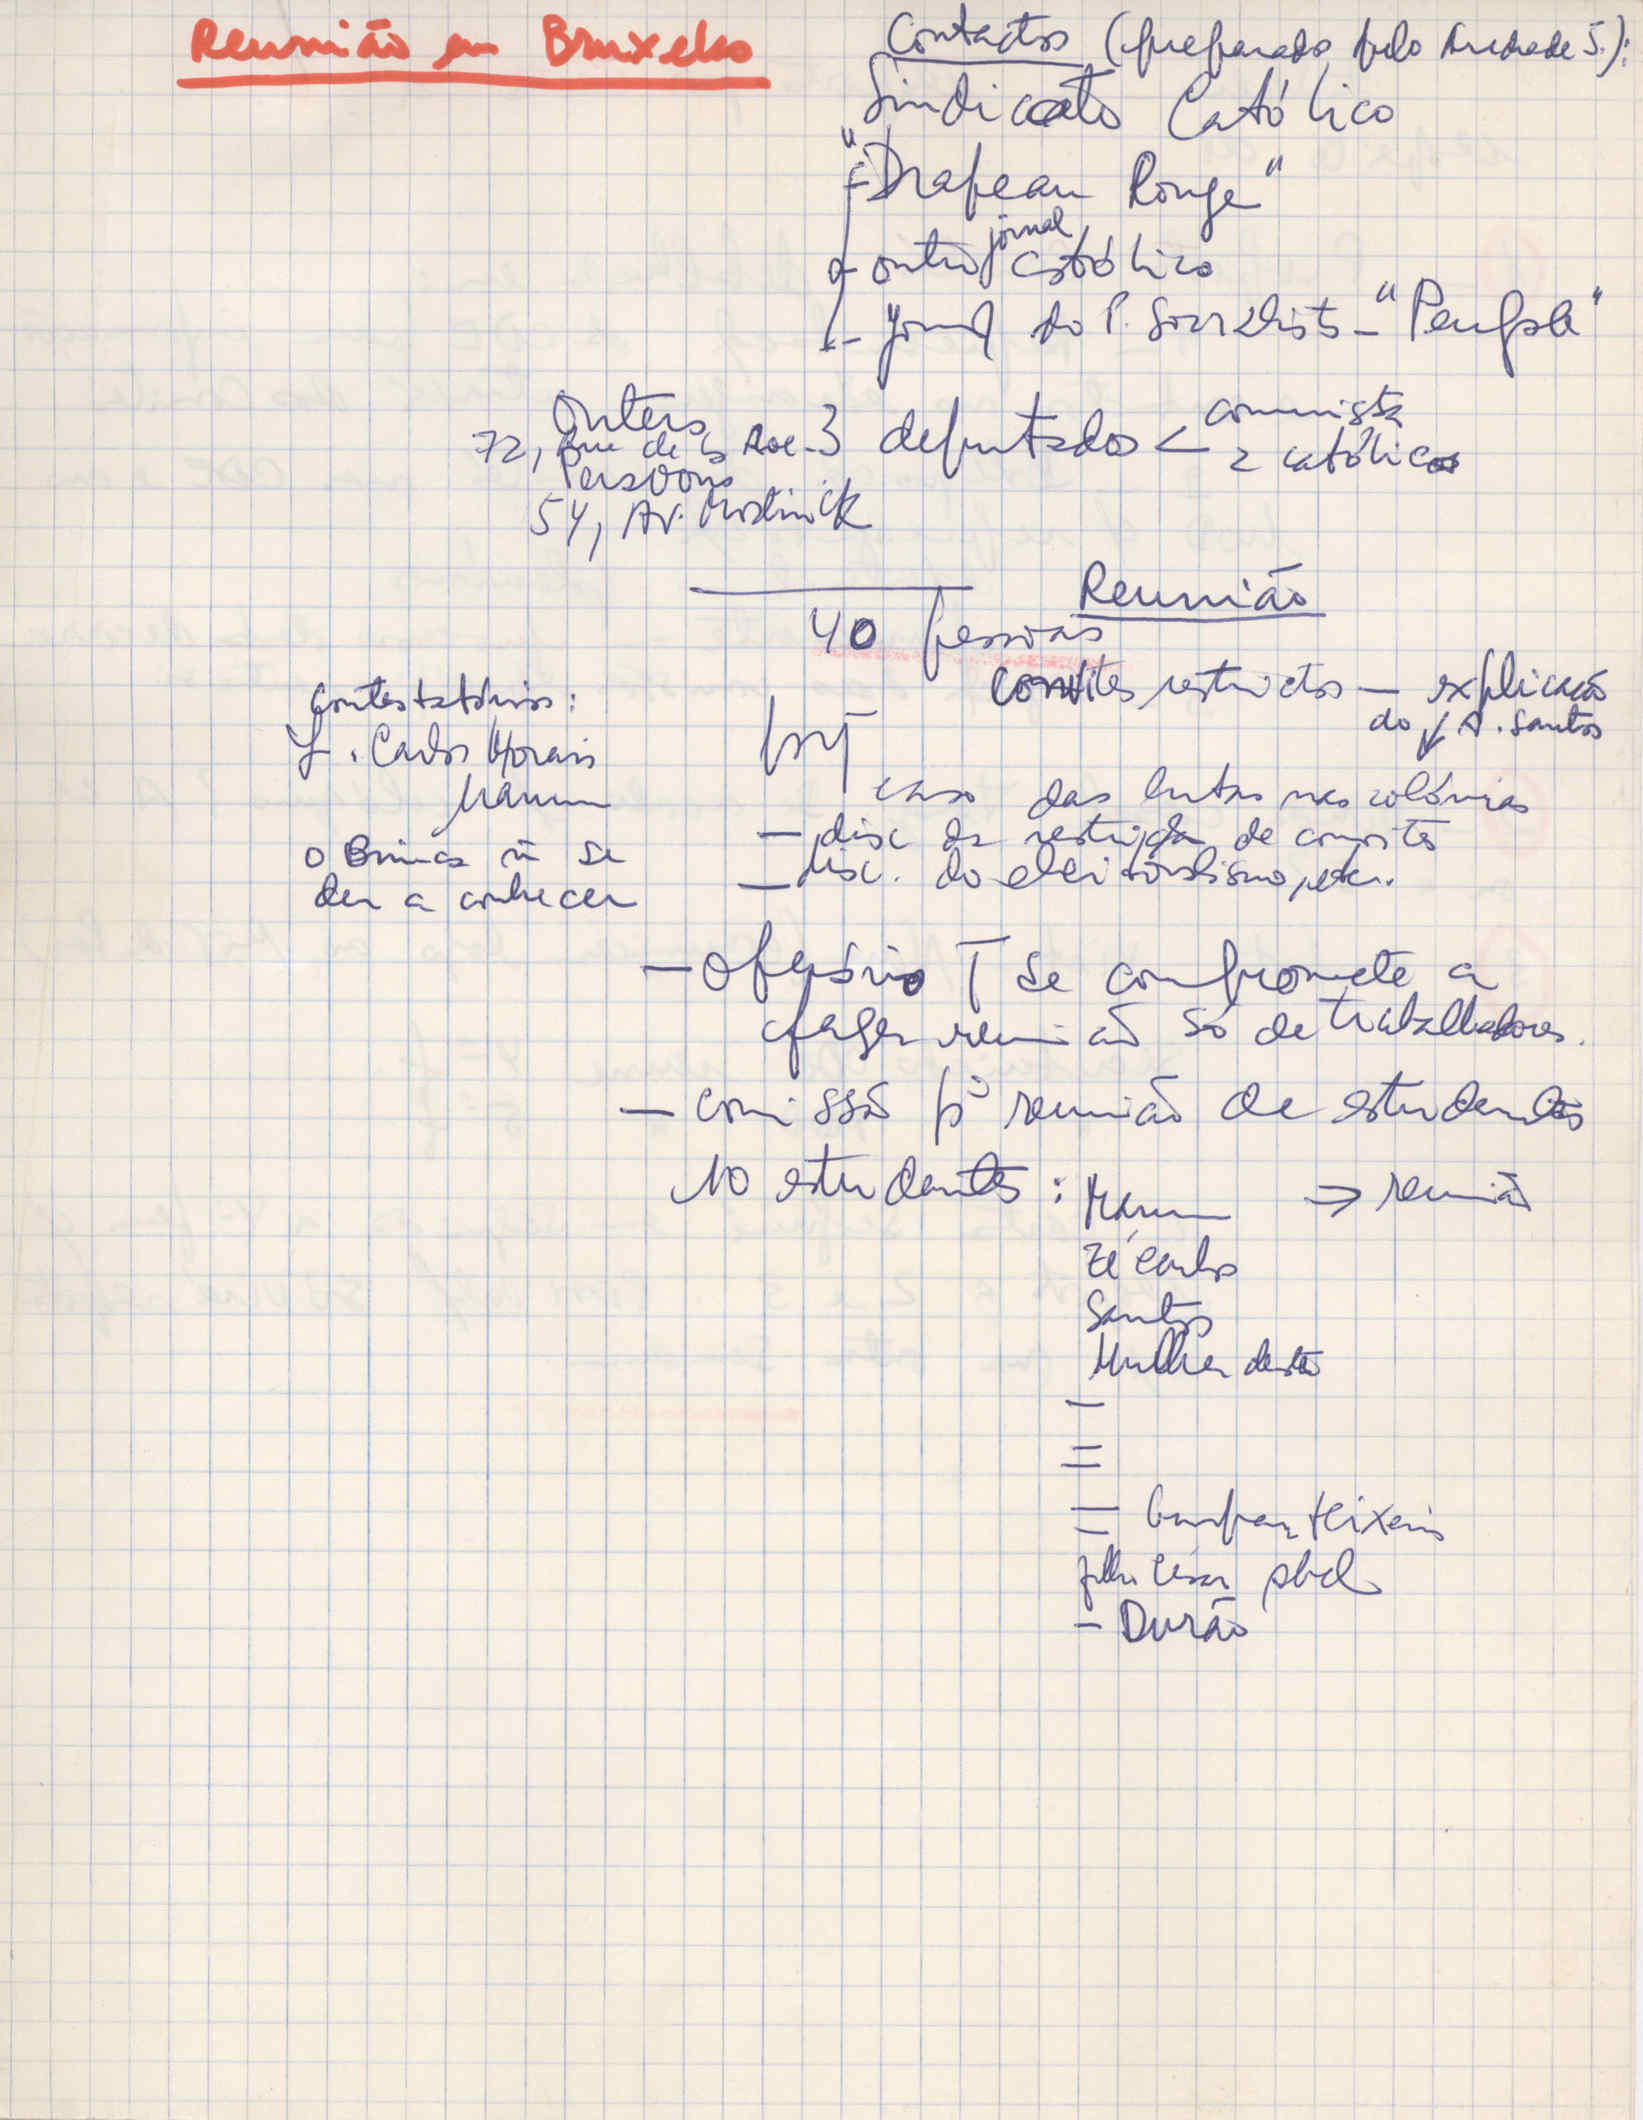 Reunião em Bruxelas
Contactos (preparado pelo Andrade S.):
Sindicato Católico
"Drapeau Rouge"
outro jornal católico
- jornal do P. Socialista - "Peuple"
Outers
72, Rue de
Persoons
54, Av.
3 deputados < comunista
2 católicos
Reunião
40 pessoas
convites restrictos — explicação
do A. Santos
Contestatários:
Carlos Morais
caso das lutas nas colónias
— disc da restrição de convites
— disc. do eleitoralismo, etc.
o se
deu a conhecer
— Operário se compromete a
fazer reunião só de trabalhadores.
— comissão pª reunião de estudantes
10 estudantes:
→ reunião
Zé Carlos
Santos
Mulher deste
—
=
= Teixeira
filho César
- Durão